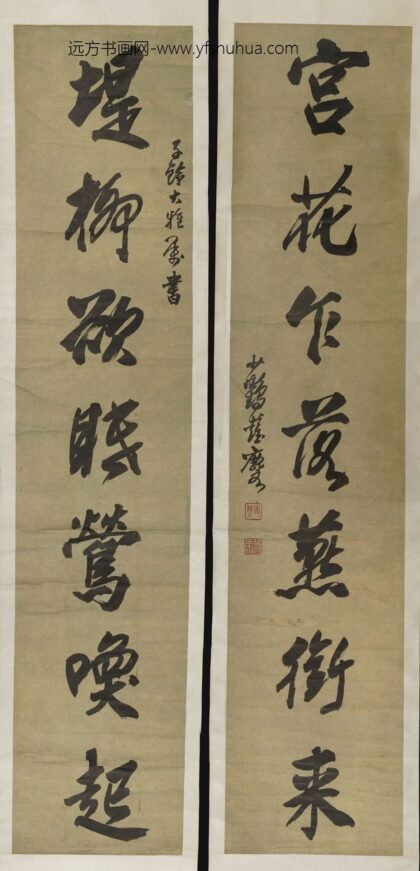 远方书画网-www.yfshuhua.com
宫花乍落燕衔来
堤柳欲眠莺唤起
大雅属书